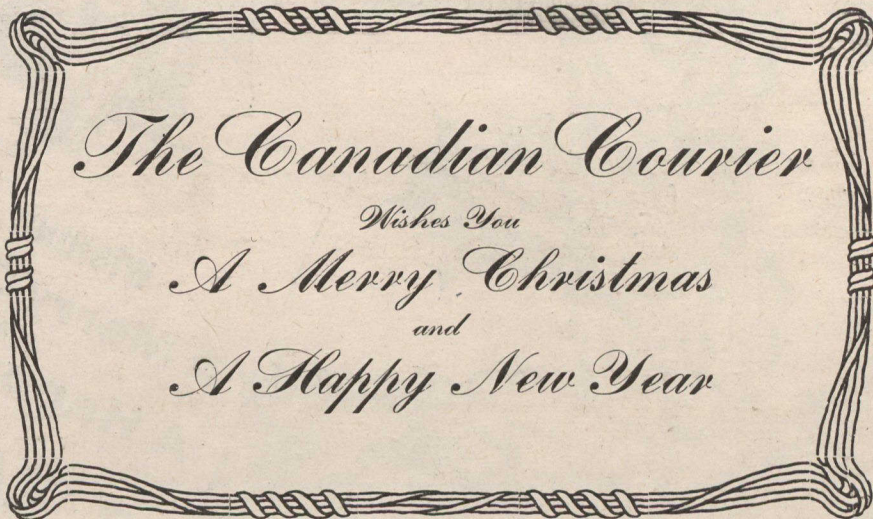 The Canadian Courier
Wishes You
A Merry Christmas
and
A Happy New Year